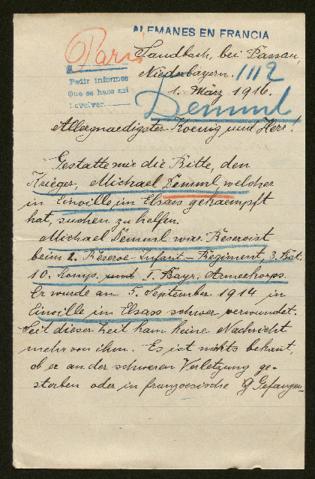 ALEMANES EN FRANCIA
Paris
Sandbach, bei Passau,
Niederbayern. 1112
Pedir informes
Que se haga así
Devolver
1. März 1916.
Demml
Allergnaedigster Koenig und Herr!
Gestatte mir die Bitte, den
Krieger, Michael Demml welcher
in Einville in Elsass gekaempft
hat, suchen zu helfen.
Michael Demml war Reservist
beim 2. Reserve-Infant-Regiment, 3. Bat.
10. Komp. und I. Bayr. Armeekorps.
Er wurde am 5. September 1914 in
Einville in Elsass schwer verwundet.
Seit dieser Zeit kam keine Nachricht
mehr von ihm. Es ist nichts bekannt,
ob er an der schweren Verletzung ge-
storben oder in franzoesische Gefangen-